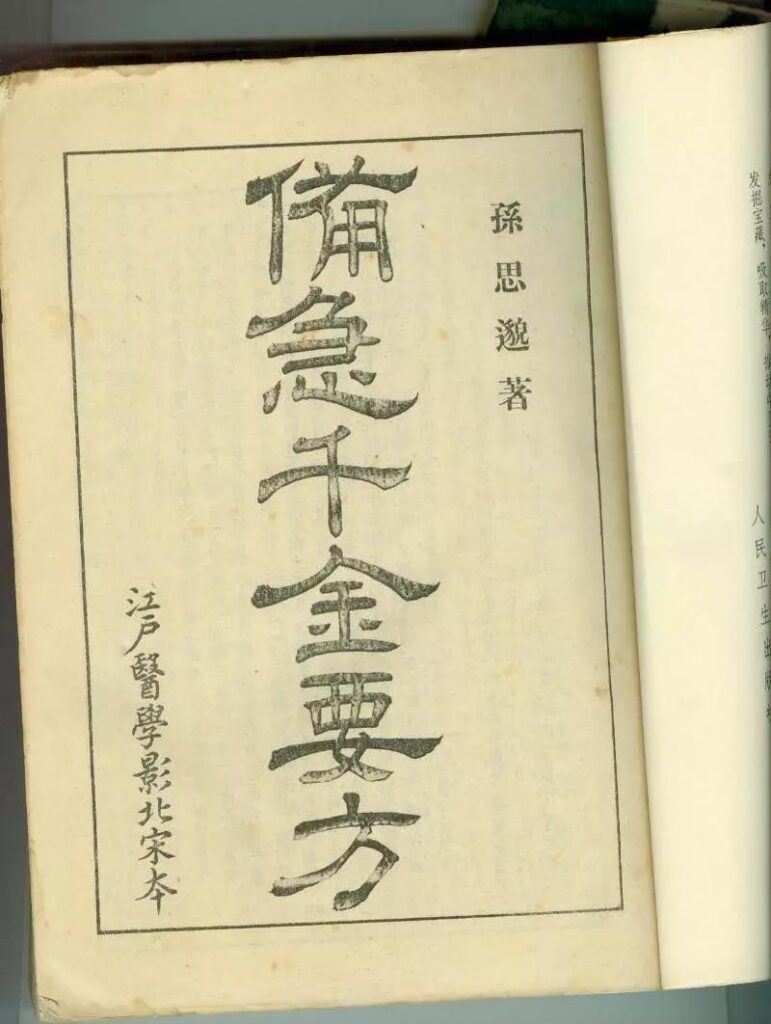 孫思邈著
備急千金要方
江戸醫學影北宋本
发掘宝藏，吸取精华，
人民卫生出版社